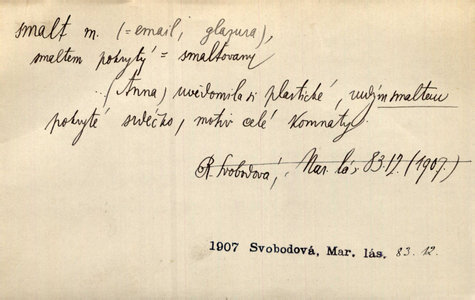 smalt m. (= email, glazura),
smaltem pokrytý = smaltovaný
(Anna) uvědomila si plastické, rudým smaltem
pokryté srdéčko, motiv celé komnaty.
R. Svobodová, Mar. lás. 83.12. (1907.)
1907 Svobodová, Mar. lás. 83.12.